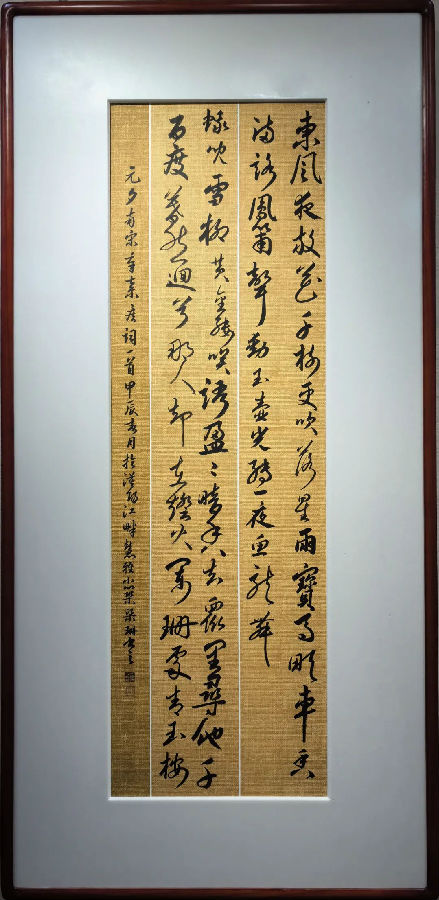 東風夜放花千樹更吹落星雨寶馬雕車香
滿路鳳簫聲動玉壺光轉一夜魚龍舞
蛾兒雪柳黄金縷笑語盈〻暗香去眾里尋他千
百度驀然迴首那人却在燈火闌珊處青玉案
元夕南宋辛棄疾詞一首甲辰春月於江畔慧雅小築梁珊書之